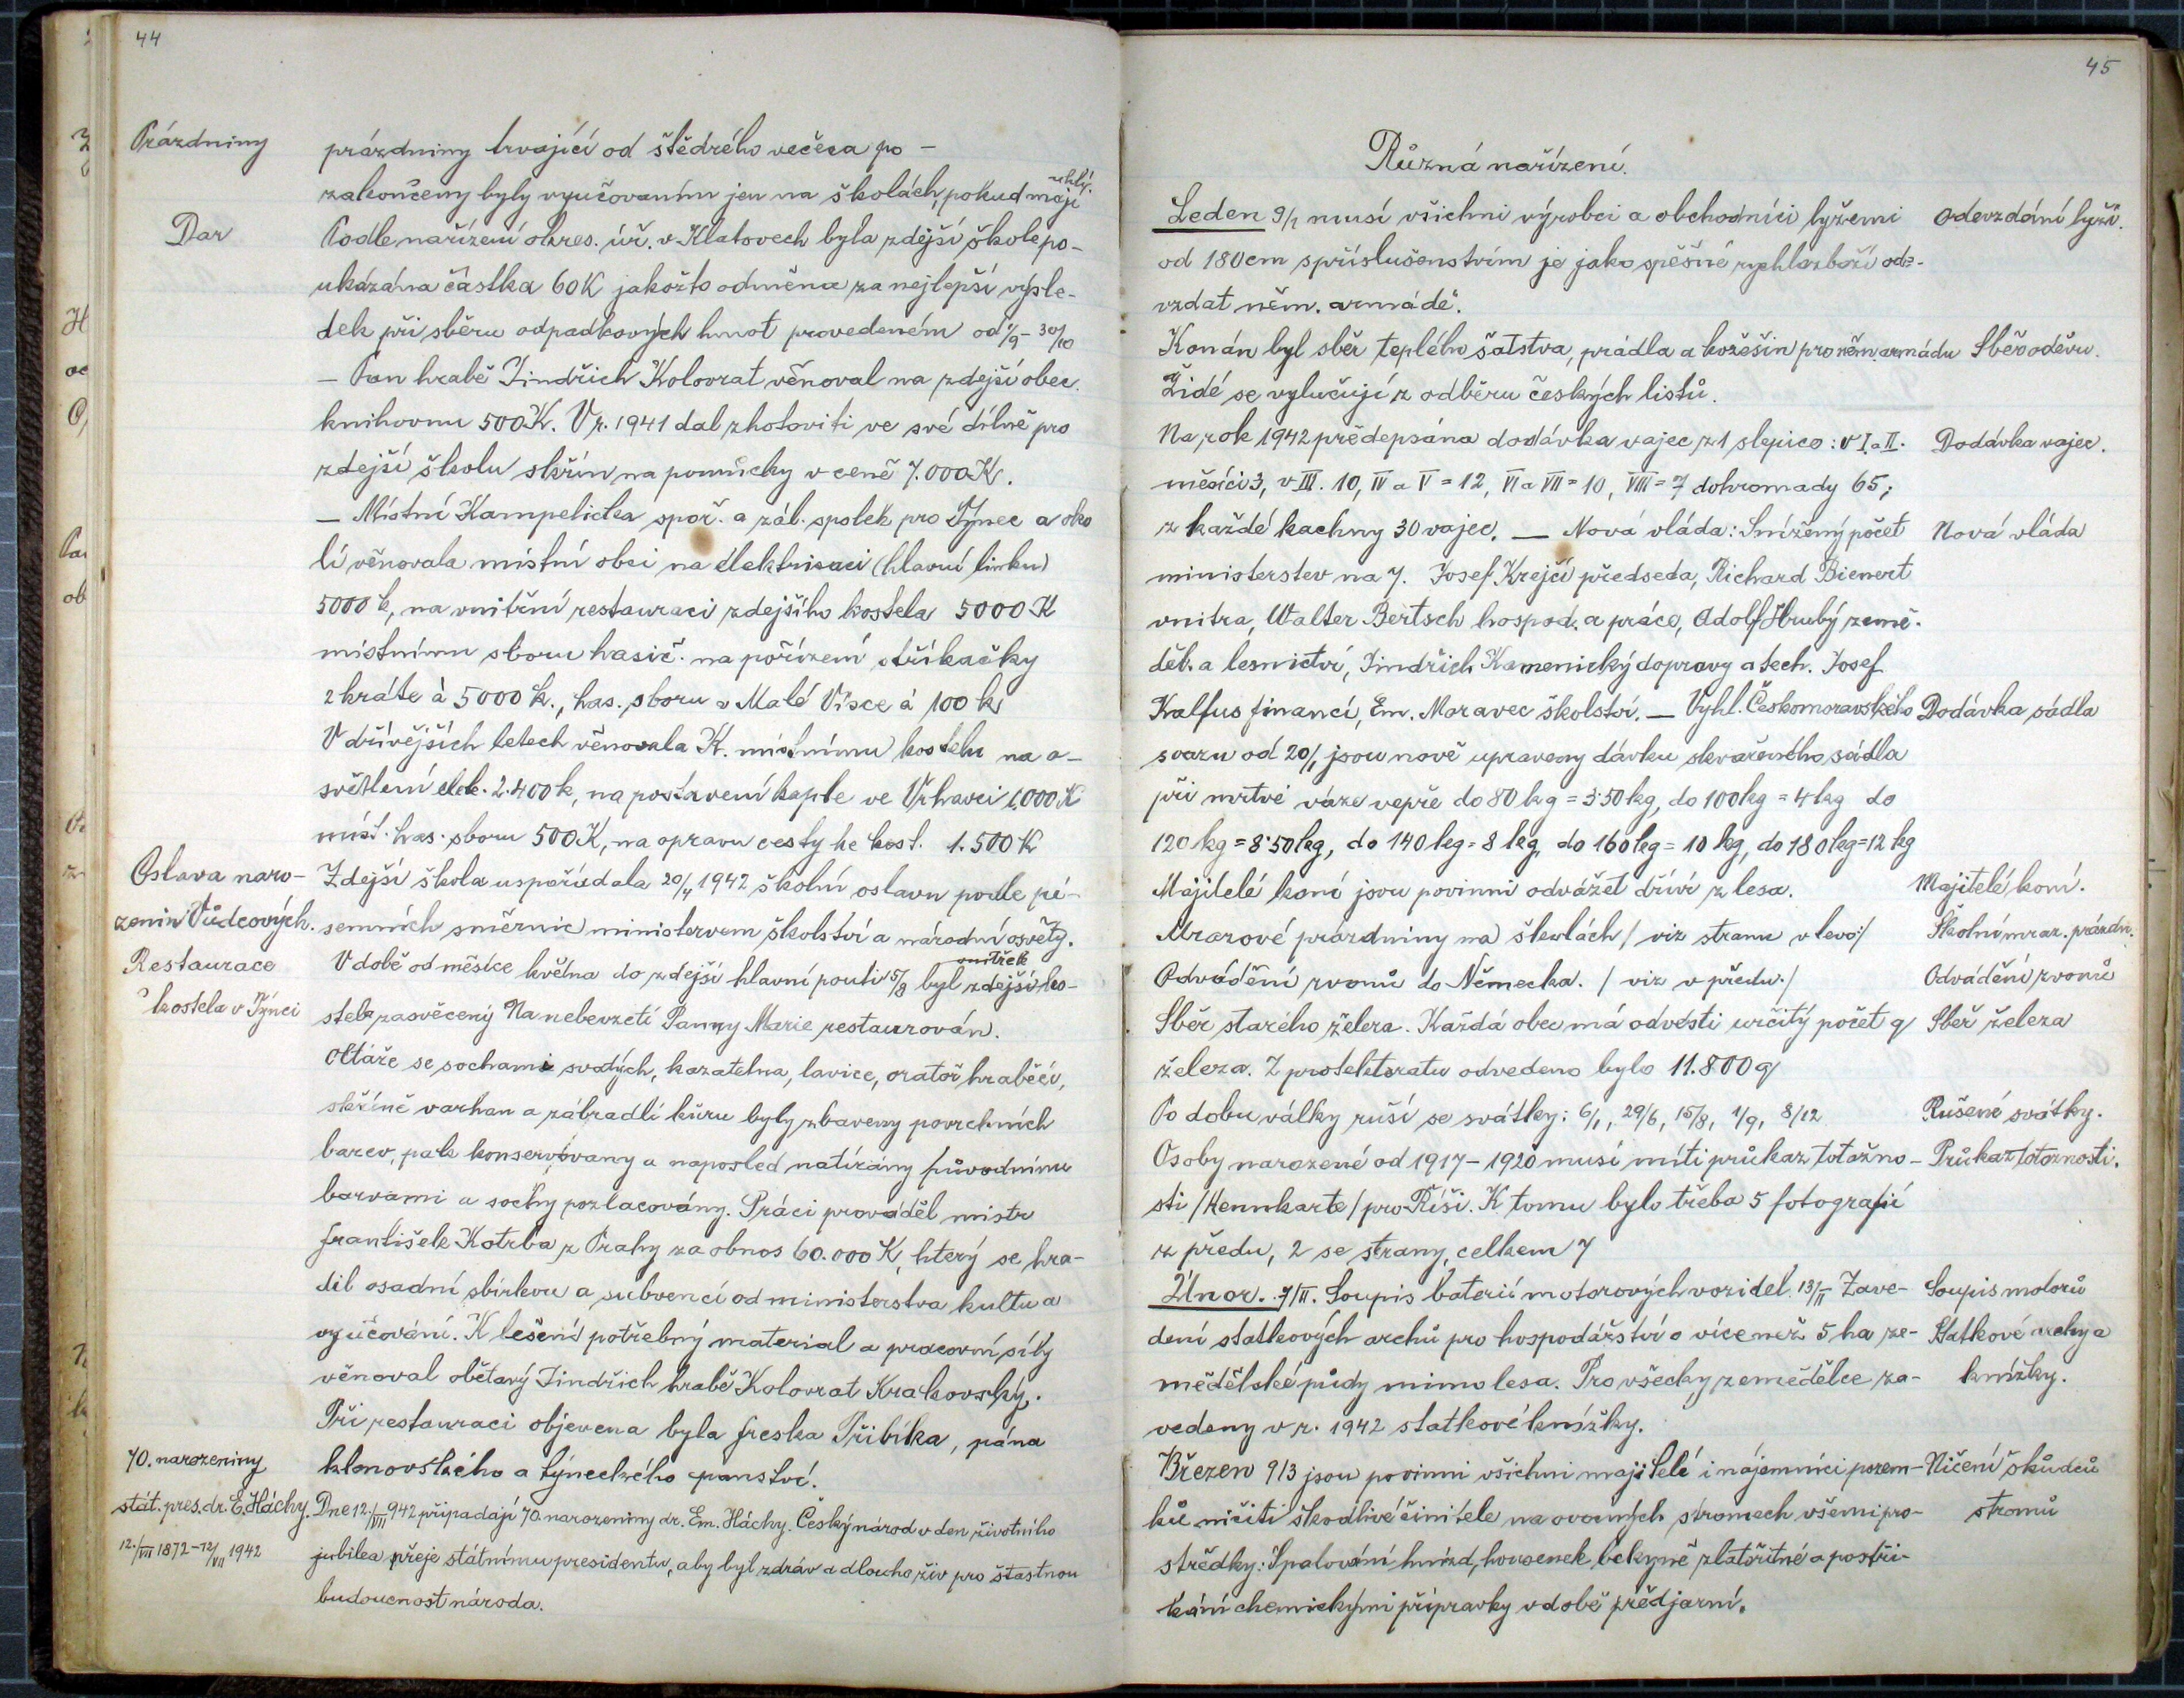 44
Prázdniny
prázdniny trvající od štědrého večera po -
uhlí.
zakončeny byly vyučovaním jen na školách, pokud mají
Dar
Podle nařízení okres. úř. v Klatovech byla zdejší škole po-
ukázána částka 60 K jakožto odměna za nejlepší výsle-
dek při sběru odpadkových hmot provedeném od 1/9 - 30/10
- Pan hrabě Jindřich Kolovrat věnoval na zdejší obec.
knihovnu 500 K. V r. 1941 dal zhotoviti ve své dílně pro
zdejší školu skříň na pomůcky v ceně 7.000 K.
- Místní Kampelička spoř. a zál. spolek pro Týnec a oko
lí věnovala místní obci na elektrisaci (hlavní linku)
5000 k, na vnitřní restauraci zdejšího kostela 5000 K
místnímu sboru hasič. na pořízení stříkačky
2 kráte à 5000 k., has. sboru v Malé Vísce à 100 k
V dřívějších letech věnovala K. místnímu kostelu na o-
světlení elek. 2.400 k, na postavení kaple ve Vrhavci 1,000 K
míst. has. sboru 500 K, na opravu cesty ke kost. 1.500 K
Oslava naro-
zenin Vůdcových.
Zdejší škola uspořádala 20/4 1942 školní oslavu podle pí-
semních směrnic ministerwem školství a národní osvěty.
Restaurace
kostela v Týnci
vnitřek
V době od měsíce května do zdejší hlavní pouti 15/8 byl zdejší ko-
stel zasvěcený Na nebevzetí Panny Marie restaurován.
Oltáře se sochami svatých, kazatelna, lavice, oratoř hraběcí,
skříně varhan a zábradlí kůru byly zbaveny povrchních
barev, pak konservovány a naposled natírány původními
barvami a sochy pozlacovány. Práci prováděl mistr
František Kotrba z Prahy za obnos 60.000 K, který se hra-
dil osadní sbírkou a subvencí od ministerstva kultu a
vyučování. K lešení potřebný material a pracovní síly
věnoval obětavý Jindřich hrabě Kolovrat Krakovský.
Při restauraci objevena byla freska Přibíka, pána
klenovského a týneckého panství.
70. narozeniny
stát. pres. dr. E. Háchy.
12./VII 1872 - 12/VII 1942
Dne 12./VII 942 připadají 70. narozeniny dr. Em. Háchy. Český národ v den životního
jubilea přeje státnímu presidentu, aby byl zdráv a dlouho živ pro šťastnou
budoucnost národa.
45
Různá nařízení.
Leden 9/1 musí všichni výrobci a obchodníci lyžemi
Odevzdání lyží.
od 180 cm s příslušenstvím je jako spěšné rychlozboží ode-
vzdat něm. armádě.
Konán byl sběr teplého šatstva, prádla a kožešin pro něm. armádu
Sběr oděvu.
Židé se vylučují z odběru českých listů.
Na rok 1942 předepsána dodávka vajec z 1 slepice: v I. a II.
Dodávka vajec.
měsíci 3, v III. 10, IV a V = 12, VI a VII = 10, VIII = 7 dohromady 65;
z každé kachny 30 vajec. - Nová vláda: Snížený počet
Nová vláda
ministerstev na 7. Josef Krejčí předseda, Richard Bienert
vnitra, Walter Bertsch hospod. a práce, Adolf Hrubý země-
děl. a lesnictví, Jindřich Kamenický dopravy a tech. Josef
Kalfus financí, Em. Moravec školství. - Vyhl. Českomoravského
Dodávka sádla
svazu od 20/1 jsou nově upraveny dávku skvařeného sádla
při mrtvé váze vepře do 80 kg = 3·50 kg, do 100 kg = 4 kg do
120 kg = 8·50 kg, do 140 kg = 8 kg, do 160 kg = 10 kg, do 180 kg = 12 kg
Majitelé koní jsou povinni odvážet dříví z lesa.
Majitelé koní.
Mrazové prázdniny na školách / viz stranu vlevo /
Školní mraz. prázdn.
Odvádění zvonů do Německa. / viz v předu. /
Odvádění zvonů
Sběr starého železa. Každá obec má odvésti určitý počet q
Sběr železa
železa. Z protektoratu odvedeno bylo 11.800 q
Po dobu války ruší se svátky: 6/1, 29/6, 15/8, 1/9, 8/12
Rušené svátky.
Osoby narozené od 1917 - 1920 musí míti průkaz totožno-
Průkaz totoznosti.
sti / Kennkarte / pro Říši. K tomu bylo třeba 5 fotografií
z předu, 2 se strany, celkem 7
Únor. 7/II. Soupis baterií motorových vozidel. 13/II Zave-
Soupis motorů
dení statkových archů pro hospodářství o více než 5 ha ze-
Statkové archy a
mědělské půdy mimo lesa. Pro všecky zemědělce za-
knížky.
vedeny v r. 1942 statkové knížky.
Březen 9/3 jsou povinni všichni majitelé i nájemníci pozem-
Ničení škůdců
ků ničiti škodlivé činitele na ovocných stromech všemi pro-
stromů
středky: Spalování hnízd, housenek bekyně zlatořitné a postři-
kání chemickými přípravky v době předjarní.